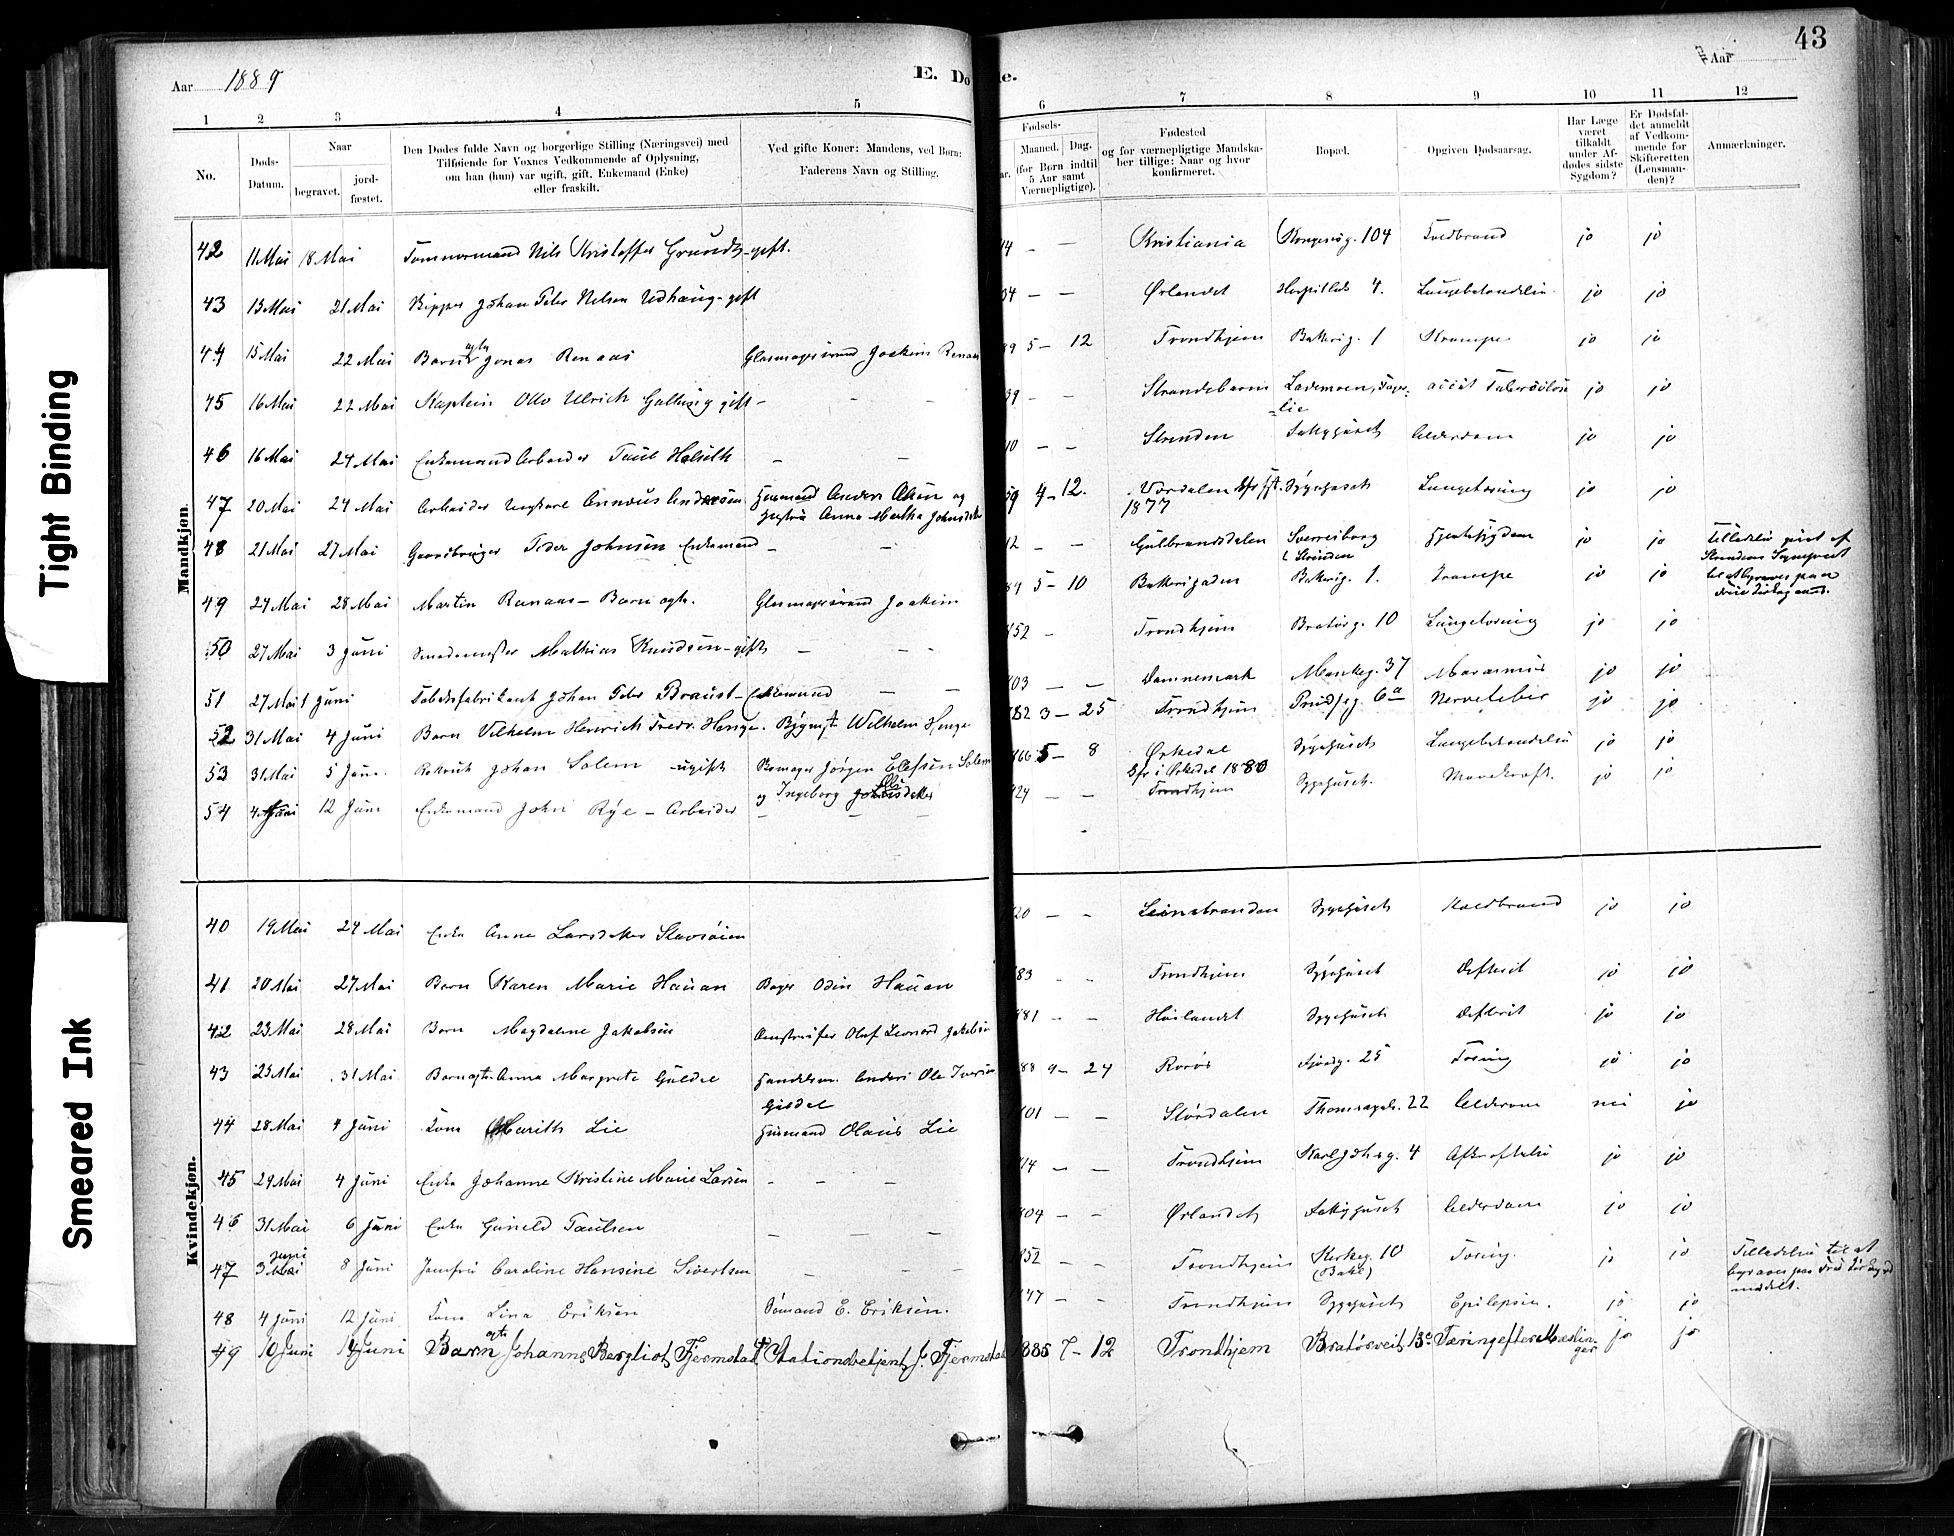 Tight Binding
Smeared Ink
43
Aar 1889
E. Dø
e.
Aar
1 2 3 4 5 6 7 8 9 10 11 12
No.
Døds-Datum.
Naar
begravet.
jord-fæstet.
Den Dødes fulde Navn og borgerlige Stilling (Næringsvei) med
Tilføiende for Voxnes Vedkommende af Oplysning,
om han (hun) var ugift, gift, Enkemand (Enke)
eller fraskilt.
Ved gifte Koner: Mandens, ved Børn:
Faderens Navn og Stilling.
Fødsels-
ar. Maaned. Dag.
(for Børn indtil
5 Aar samt
Værnepligtige).
Fødested
og for værnepligtige Mandska-
ber tillige: Naar og hvor
konfirmeret.
Bopæl.
Opgiven Dødsaarsag.
Har Læge
været
tilkaldt
under Af-
dødes sidste
Sygdom?
Er Dødsfal-
det anmeldt
af Vedkom-
mende for
Skifteretten
(Lensman-
den)?
Anmærkninger.
Mandkjøn.
42 11 Mai 18 Mai Nils Kristoffer Grundt - gift. 14 - - Kristiania Kongensg. 104 Koldbrand jo jo
43 13 Mai 21 Mai Johan Peter Nelsen Udhaug - gift 04 - - Ørlandet 4. jo jo
44 15 Mai 22 Mai Barn ægte Jonas Renaas Joakim Renaas 89 5 - 12 Trondhjem Bakerig. 1 Krampe jo jo
45 16 Mai 22 Mai Kaptein Otto Ulrich gift - - - 39 - - Strandebarm Lademoen, Fager-
lie jo jo
46 16 Mai 24 Mai Enkemand Arbeider Halseth - - 10 - - Strinden Alderdom jo jo
47 20 Mai 24 Mai Arbeider Ungkarl Annæus Andersen Husmand Anders Olsen og
Hustru Anna Martha Johnsdatter 59 4 - 12. Værdalen
1877 Sygehuset Lungetæring jo jo
48 21 Mai 27 Mai Peder Johnsen Enkemand - - 12 - - Gulbrandsdalen Sverresborg
i Strinden Hjertesygdom jo jo Tilladelse givet af
Strindens Sogneprest
til at begraves paa
49 24 Mai 28 Mai Martin Renaas - Barn ægte. Joakim 89 5 - 10 Bakerigaden Bakerig. 1. Krampe jo jo
50 27 Mai 3 Juni Smedemester Mathias Knudsen - gift - - 852 - Trondhjem Bratørg. 10 Lungetæring jo jo
51 27 Mai 1 Juni Tobaksfabrikant Johan Peter Braust - Enkemand - - 803 - - Dannemark Munkeg. 37 Marasmus jo jo
52 31 Mai 4 Juni Barn Vilhelm Henrich Fredr. Henge. Wilhelm Henge 882 3 - 25 Trondhjem 6a Nervefeber jo jo
53 31 Mai 5 Juni Rekrut Johan Solem - ugift Jørgen Elefsen Solem
og Ingeborg 866 5 - 8 Ørkedal
i Ørkedal 1880 Sygehuset Lungebetændelse jo jo
54 4 Juni 12 Juni Enkemand John Rye - Arbeider - - - 824 - - Trondhjem Sygehuset. Mavekræft. jo jo
Kvindekjøn.
40 19 Mai 24 Mai Enke Anne Larsdatter 20 - - Leinstranden Sygehuset Koldbrand jo jo
41 20 Mai 27 Mai Barn Karen Marie Hauan Bager Odin Hauan 83 - - Trondhjem Sygehuset Difterit jo jo
42 23 Mai 28 Mai Barn Magdalene Jakobsen Olaf Leonard Jakobsen 881 - - Høilandet Sygehuset Difterit jo jo
43 25 Mai 31 Mai Barn ægte Anna Margrete Guldal Handelsm. Anders Ole Iversen
Guldal 888 9 - 24 Rørøs Fjordg. 25 Tæring jo jo
44 28 Mai 4 Juni Kone Marith Lie Husmand Olaus Lie 801 - - Stördalen 22 Alderdom nei jo
45 29 Mai 4 Juni Enke Johanne Kristine Marie Larsen - - - 814 - - Trondhjem Karl Johsg. 4 Afkræftelse jo jo
46 31 Mai 6 Juni Enke Guneld Paulsen - - - 804 - - Ørlandet Alderdom jo jo
47 3 Juni Mai 8 Juni Jomfru Caroline Hansine Sivertsen - - - 852 - - Trondhjem Kirkeg. 10
(Bakl) Tæring. jo jo Tilladelse til at
begraves paa
meddelt.
48 4 Juni 12 Juni Kone Lina Eriksen Sömand E. Eriksen. 847 - - Trondhjem Sygehuset Epilepsie. jo jo
49 10 Juni 14 Juni Barn ægte Johanne Bergliot Fjermstad Stationsbetjent J. Fjermstad 1885 7 - 12 Trondhjem Bratørveit. 13c Tæring efter Mæslin-
ger jo jo